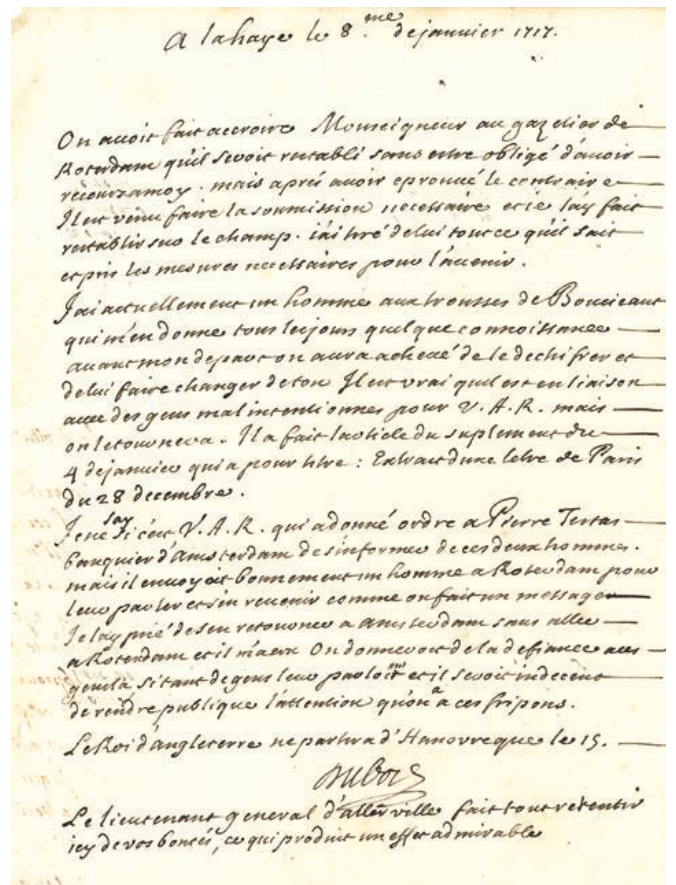 A lahaye le 8.me de janvier 1717.
On avoit fait accroire Monseigneur au gazetier de
Roterdam qu'il seroit retabli sans estre obligé d'avoir
recours a moy. mais aprés avoir eprouvé le contraire
Il est venu faire la soumission necessaire et ie lay fait
restablir sur le champ. i'ai tiré de lui tout ce qu'il sait
et pris les mesures necessaires pour l'avenir.
J'ai actuellement un homme aux trousses de
qui m'en donne tous les jours quelque connoissance
avant mon depart on aura achevé de le dechifrer et
de lui faire changer de ton Il est vrai quil est en liaison
avec des gens mal intentionnes pour V. A. R. mais
on le tournera. Il a fait larticle du suplement du
4 de janvier qui a pour titre : Extrait dune letre de Paris
du 28 decembre.
Je ne say si c'est V. A. R. qui a donné ordre a Pierre Testas
banquier d'Amsterdam de s'informer de ces deux hommes.
mais il envoyoit bonnement un homme a Roterdam pour
leur parler et s'en revenir comme on fait un messager
Je lay prié de sen retourner a Amsterdam sans aller
a Roterdam et il m'a On donneroit de la defiance a ces
gens la si tant de gens leur parloient et il seroit indecent
de rendre publique l'attention qu'on a a ces fripons.
Le Roi d'angleterre ne partira d'Hanovre que le 15.
Dubois
Le lieutenant general d'allerville fait tout retentir
icy de vos bontés, ce qui produit un effet admirable